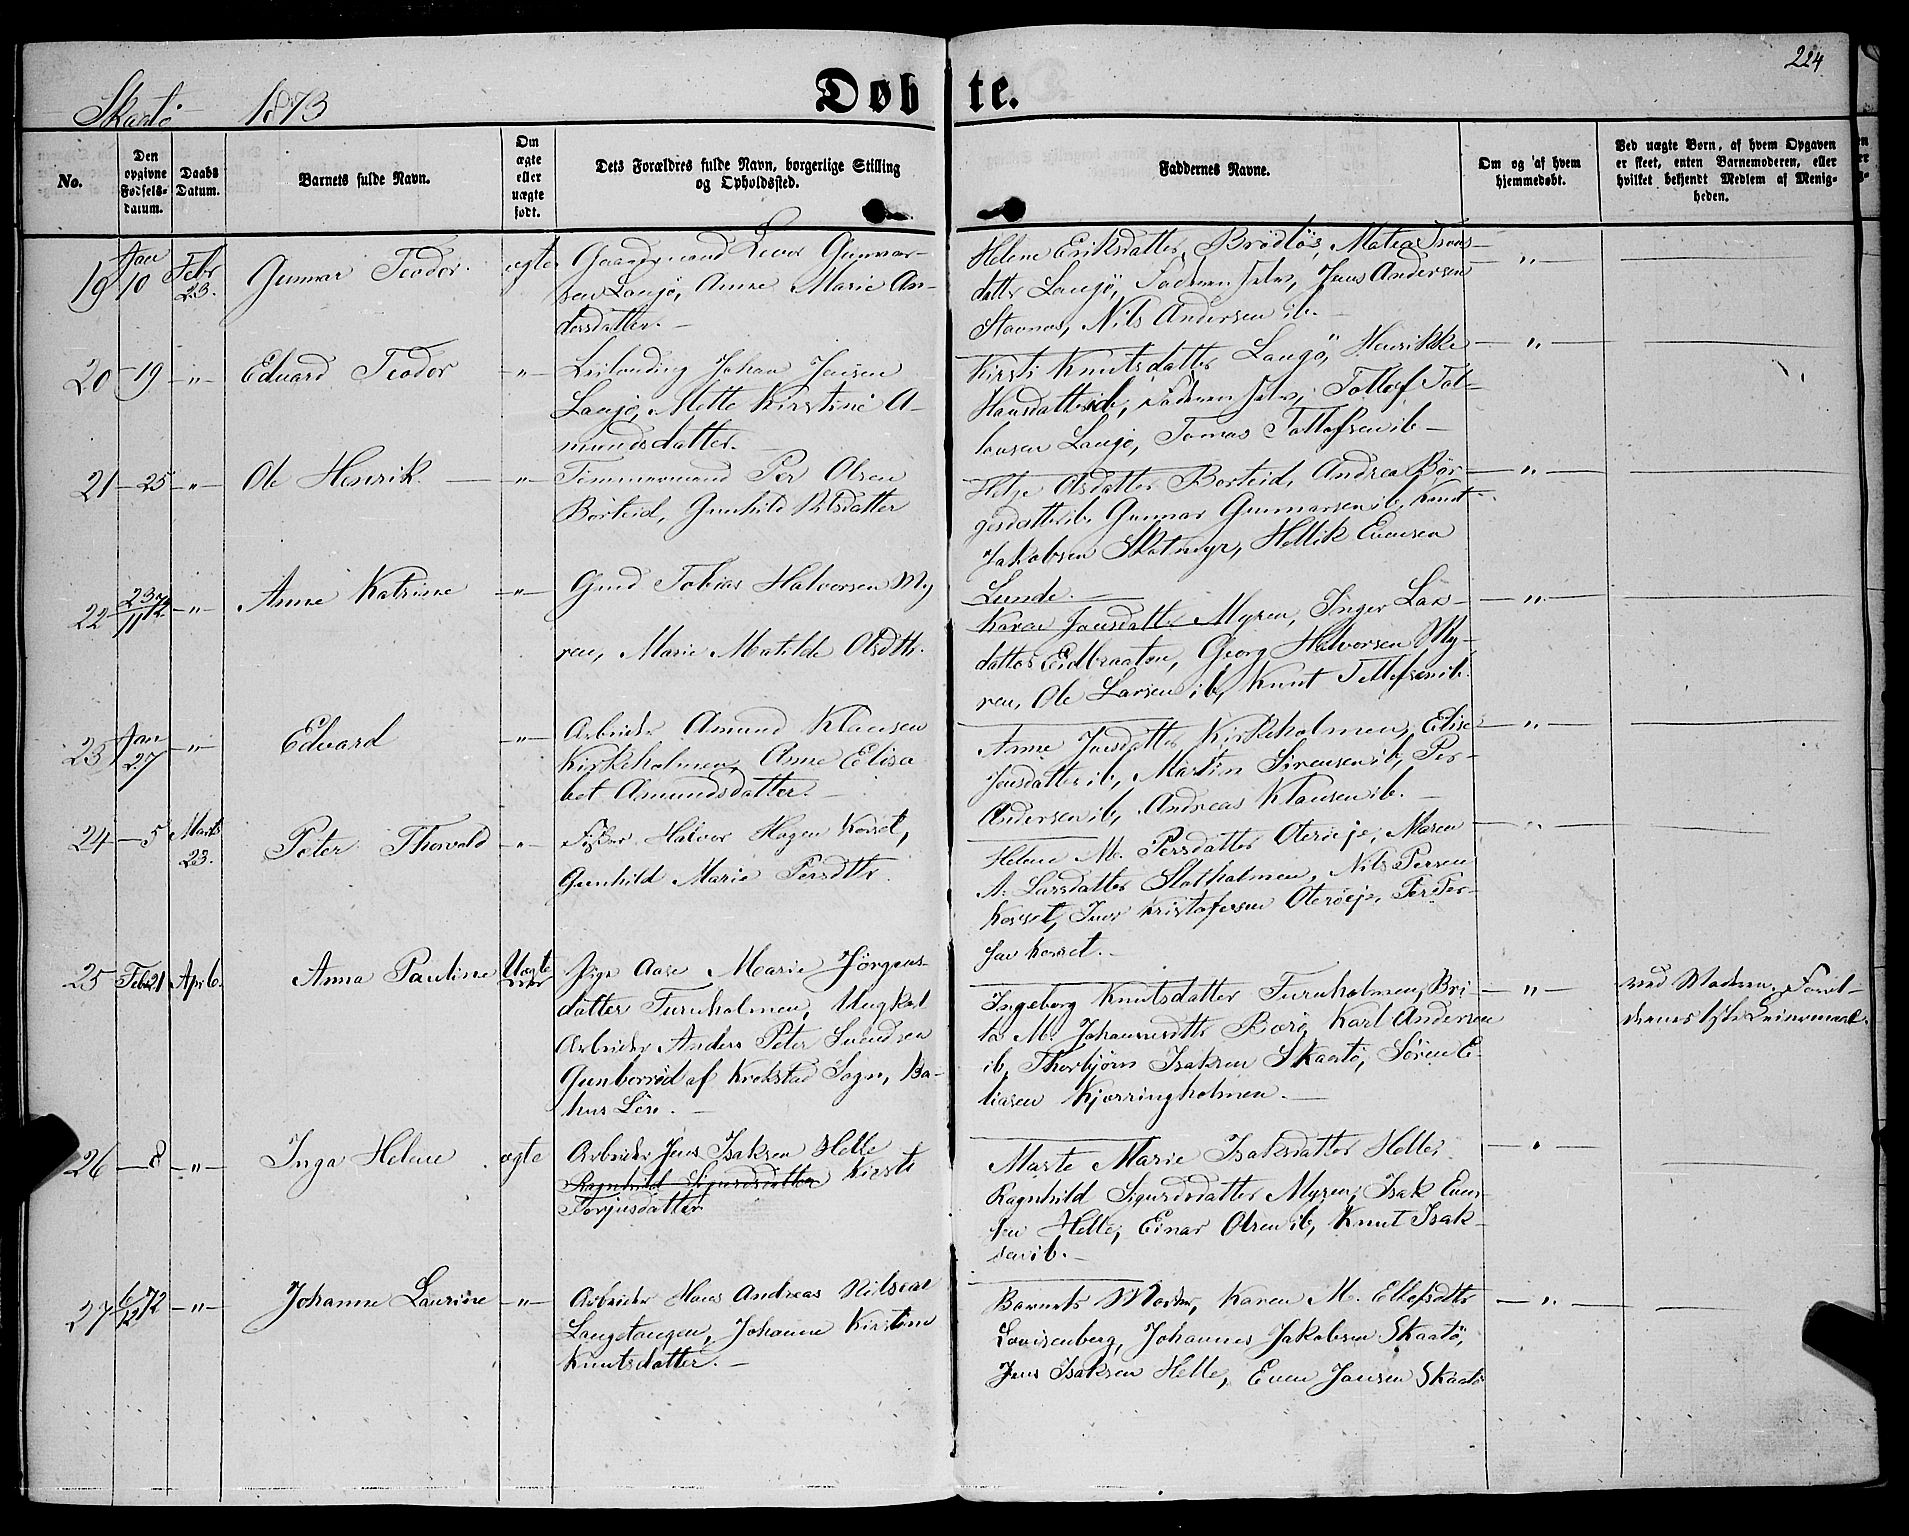 224
Skaatö 1873 Döbte.
No.
Den opgivne Fødsels-datum.
Daabs Datum.
Barnets fulde Navn.
Om ægte eller uægte født.
Dets Forældres fulde Navn, borgerlige Stilling og Opholdssted.
Faddernes Navne.
Om og af hvem hjemmedøbt.
Ved uægte Børn, af hvem Opgaven er skeet, enten Barnemoderen, eller hvilket bekjendt Medlem af Menigheden.
19 Jan 10 Febr 23. Gunnar Teodor. ægte
Gaardmand Levor Gunnar-
sen Langö, Anne Marie An-
dersdatter.
Helene Eriksdatter Brödløs, Matea
datter Langö, Faderen selv, Jens Andersen
Stavnes, Nils Andersen ib. — " —
20 — 19 — " — Edvard Teodor — " —
Leilending Johan Jensen
Langö, Mette Kirstine A-
mundsdatter.
Kirsti Knutsdatter Langö, Henrikke
Hansdatter ib, Faderen selv, Tollef Tol-
Langö, Tomas Tollefsen ib — " —
21 — 25 — " — Ole Henrik — " —
Tømmermand Per Olsen
Borteid, Gunhild Nilsdatter
Olsdatter Borteid, Andrea Bör-
gesdatter ib, Gunnar Gunnarsen ib, Knut
Jakobsen Skotmyr, Hellik Evensen
Lunde. — " —
22 23/11 72 — " — Anne Katrine — " —
Gmd Tobias Halvorsen My
ren, Marie Matilde Olsdtr.
Karen Jensdatter Myren, Inger Lars-
datter Eidbraaten, Georg Halvorsen My-
ren, Ole Larsen ib, Knut Tellefsen ib. — " —
23 Jan 27 — " — Edvard — " —
Arbeider Amund Klausen
Kirkeholmen, Anne Elisa
bet Amundsdatter.
Anne Jensdatter Kirkeholmen, Elise
Jensdatter ib, Martin Sörensen ib, Per
Andersen ib, Andreas Klausen ib. — " —
24 — 5 Marts 23. Peter Thorvald — " —
Fisker Halvor Hagen Korset,
Gunhild Marie Persdtr.
Helene M. Persdatter Oteröie, Maren
A. Larsdatter Slatholmen, Nils Persen
Korset, Jens Kristofersen Oteröie, Per Per-
sen Korset. — " —
25 Feb 21 Apr 6. Anna Pauline Uægte
Pige Aase Marie Jörgens-
datter Furuholmen, Ungkal
Arbeider Anders Peter Svendsen
Gunbersröd af Krokstad Sogn, Ba-
hus Len.
Ingeborg Knutsdatter Furuholmen, Bri-
ta M. Johannesdtr Barö, Karl Andersen
ib, Thorbjörn Isaksen Skaatö, Sören E-
liasen Kjærringholmen. — " —
ved Moderen. Foræl-
drenes 1ste Leiermaal.
26 — 8 — " — Inga Helene ægte
Arbeider Jens Isaksen Helle
Ragnhild Sigurdsdatter Kirsti
Torjusdatter
Marte Marie Isaksdatter Helle,
Ragnhild Sigurdsdatter Myren, Isak Even-
sen Helle, Einar Olsen ib, Knut Isak-
sen ib. — " —
27 6/12 72 — " — Johanne Laurine — " —
Arbeider Hans Andreas Nilsen
Langetangen, Johanne Kirstine
Knutsdatter.
Barnets Moder, Karen M. Ellefsdtr
Lovisenberg, Johannes Jakobsen Skaatö,
Jens Isaksen Helle, Even Jansen Skaatö — " —